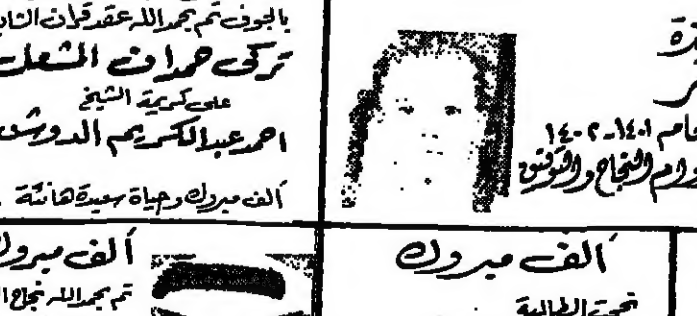 بالجوف تم بحمد الله عقد قران الشاب
تركي حمدان المشعل
على كريمة الشيخ
احمد عبدالكريم الدوش
ألف مبروك وحياة سعيدة هانئة .
عام ١٤٠١-١٤٠٢
النجاح والتوفيق
ألف مبروك
نجحت الطالبة
ألف مبروك
تم بحمد الله نجاح